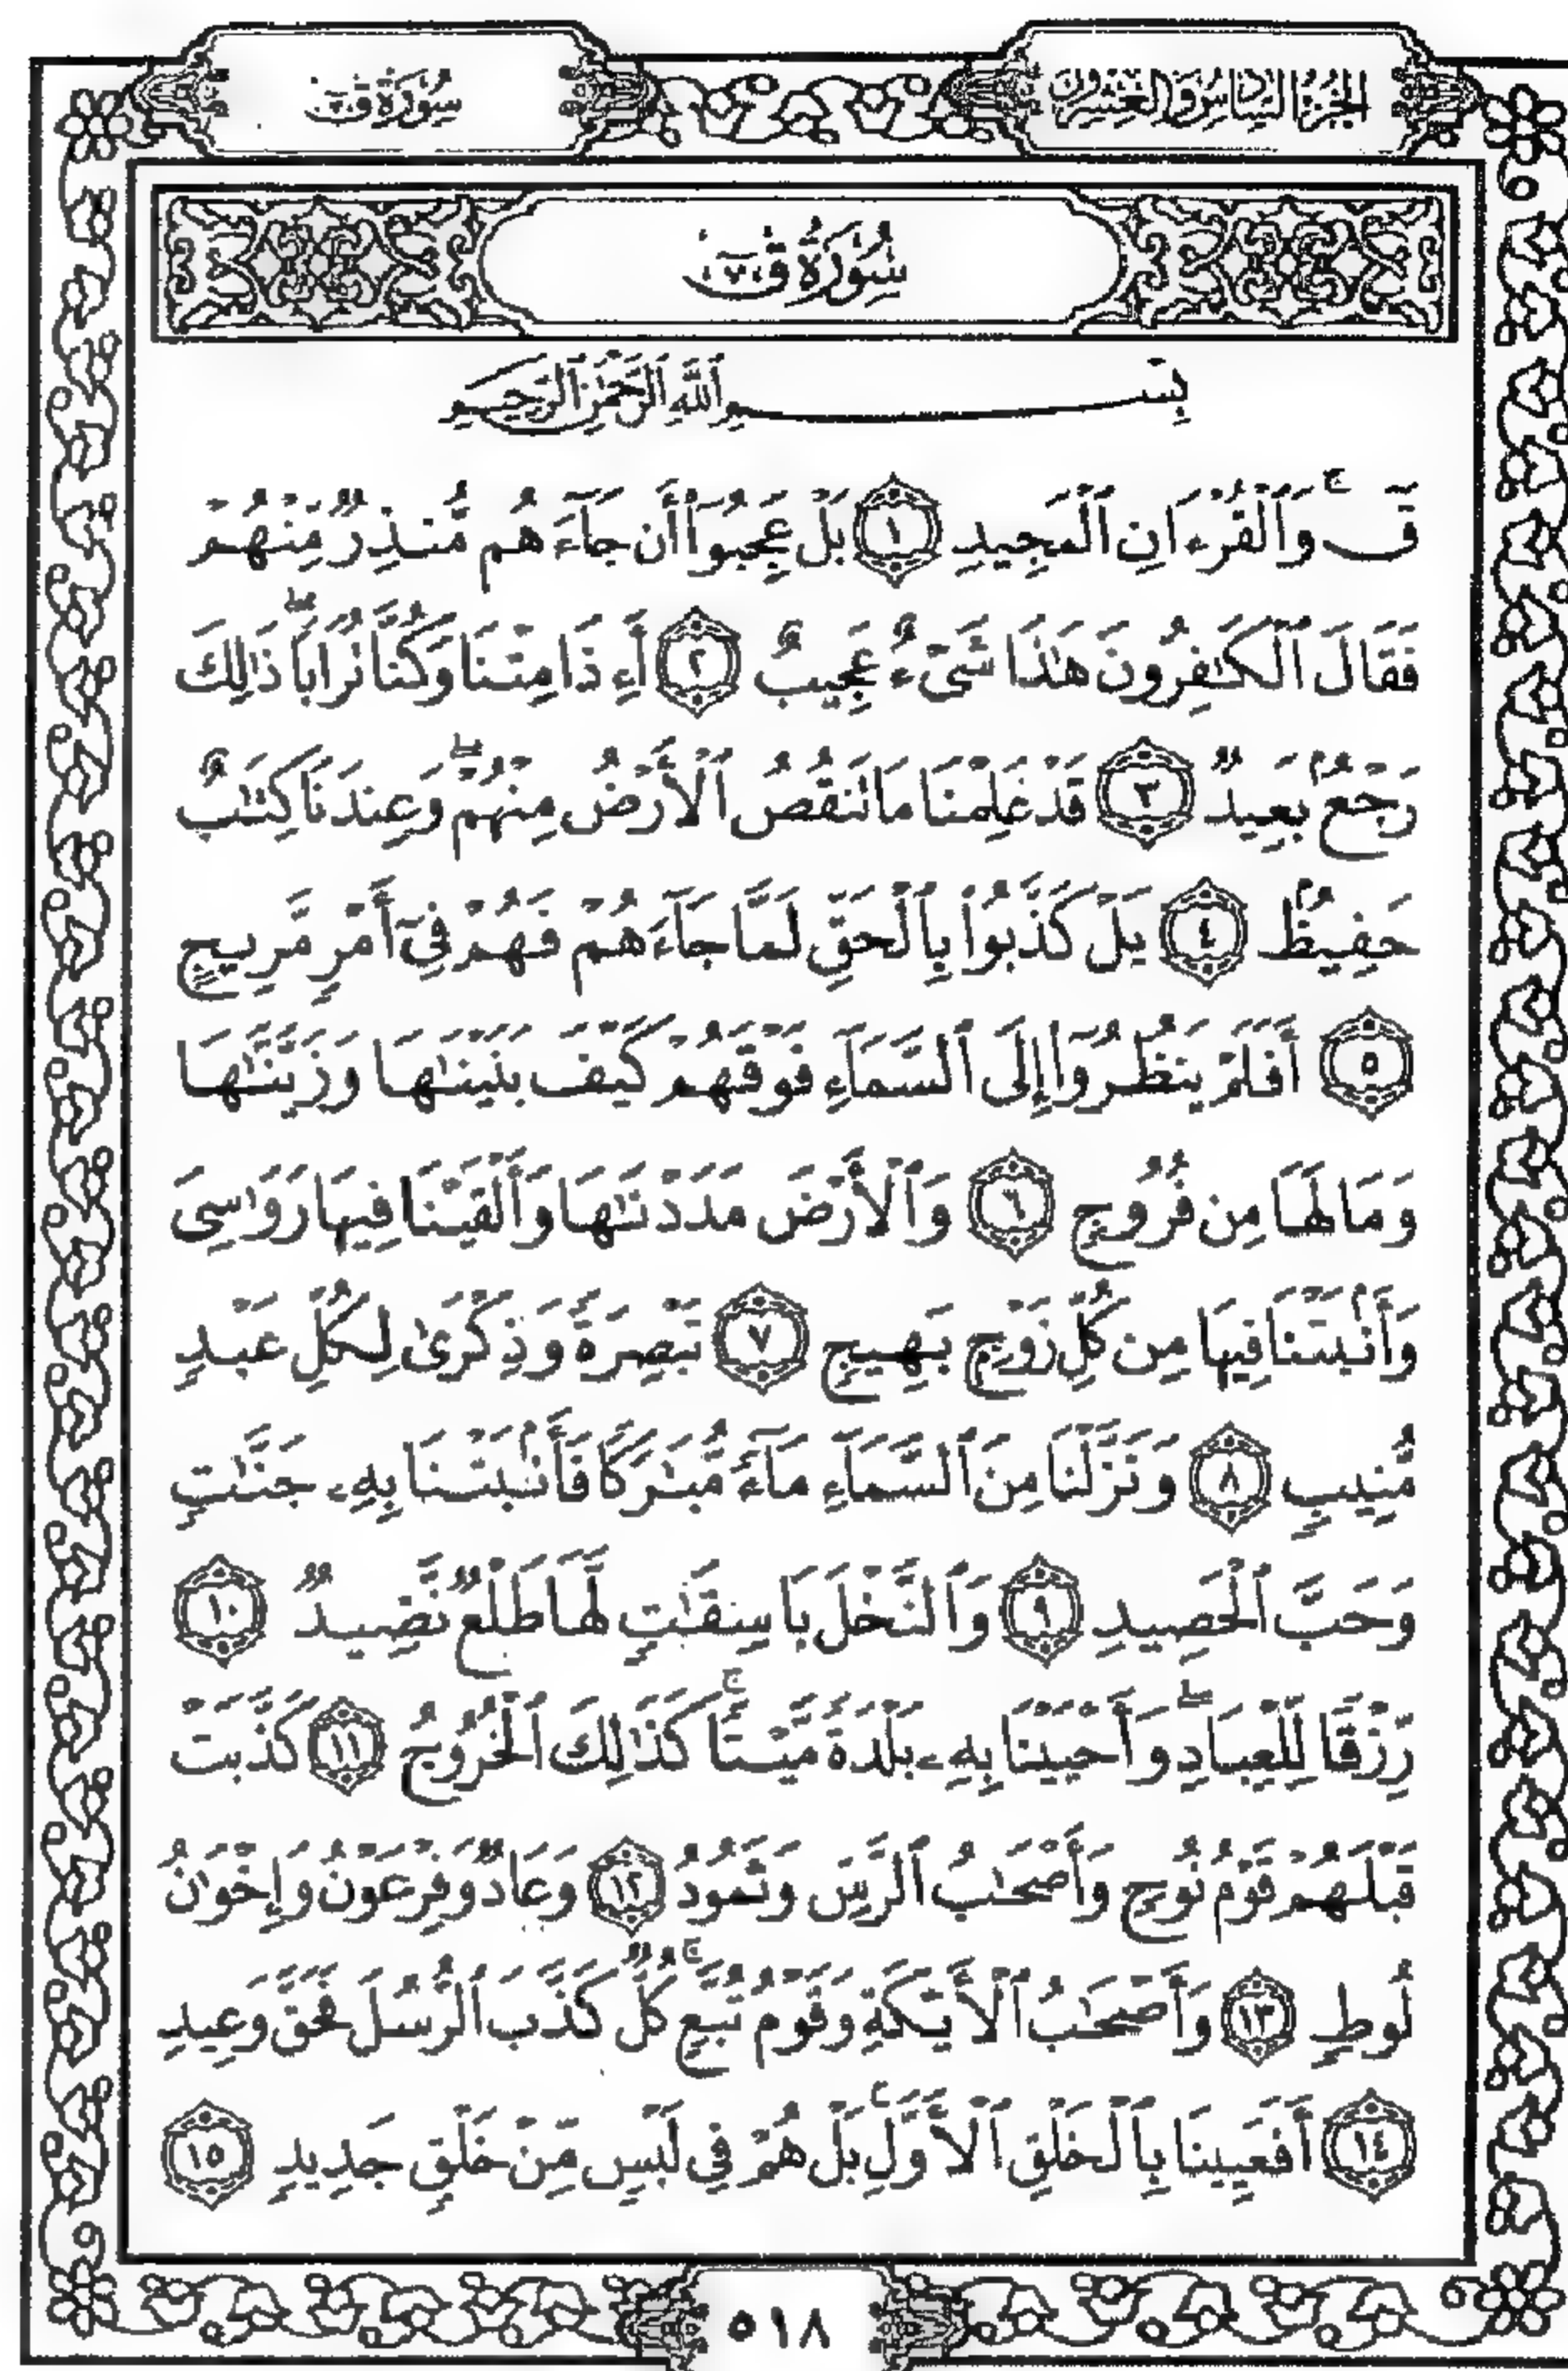 الجزء السادس والعشرون
سورة ق
سُورَةُ ق
بِسْمِ ٱللَّهِ ٱلرَّحْمَٰنِ ٱلرَّحِيمِ
قٓۚ وَٱلْقُرْءَانِ ٱلْمَجِيدِ ١ بَلْ عَجِبُوٓا۟ أَن جَآءَهُم مُّنذِرٌ مِّنْهُمْ
فَقَالَ ٱلْكَٰفِرُونَ هَٰذَا شَىْءٌ عَجِيبٌ ٢ أَءِذَا مِتْنَا وَكُنَّا تُرَابًاۖ ذَٰلِكَ
رَجْعٌۢ بَعِيدٌ ٣ قَدْ عَلِمْنَا مَا تَنقُصُ ٱلْأَرْضُ مِنْهُمْۖ وَعِندَنَا كِتَٰبٌ
حَفِيظٌۢ ٤ بَلْ كَذَّبُوا۟ بِٱلْحَقِّ لَمَّا جَآءَهُمْ فَهُمْ فِىٓ أَمْرٍ مَّرِيجٍ
٥ أَفَلَمْ يَنظُرُوٓا۟ إِلَى ٱلسَّمَآءِ فَوْقَهُمْ كَيْفَ بَنَيْنَٰهَا وَزَيَّنَّٰهَا
وَمَا لَهَا مِن فُرُوجٍ ٦ وَٱلْأَرْضَ مَدَدْنَٰهَا وَأَلْقَيْنَا فِيهَا رَوَٰسِىَ
وَأَنۢبَتْنَا فِيهَا مِن كُلِّ زَوْجٍۭ بَهِيجٍ ٧ تَبْصِرَةً وَذِكْرَىٰ لِكُلِّ عَبْدٍ
مُّنِيبٍ ٨ وَنَزَّلْنَا مِنَ ٱلسَّمَآءِ مَآءً مُّبَٰرَكًا فَأَنۢبَتْنَا بِهِۦ جَنَّٰتٍ
وَحَبَّ ٱلْحَصِيدِ ٩ وَٱلنَّخْلَ بَاسِقَٰتٍ لَّهَا طَلْعٌ نَّضِيدٌ ١٠
رِّزْقًا لِّلْعِبَادِۖ وَأَحْيَيْنَا بِهِۦ بَلْدَةً مَّيْتًاۚ كَذَٰلِكَ ٱلْخُرُوجُ ١١ كَذَّبَتْ
قَبْلَهُمْ قَوْمُ نُوحٍ وَأَصْحَٰبُ ٱلرَّسِّ وَثَمُودُ ١٢ وَعَادٌ وَفِرْعَوْنُ وَإِخْوَٰنُ
لُوطٍ ١٣ وَأَصْحَٰبُ ٱلْأَيْكَةِ وَقَوْمُ تُبَّعٍۚ كُلٌّ كَذَّبَ ٱلرُّسُلَ فَحَقَّ وَعِيدِ
١٤ أَفَعَيِينَا بِٱلْخَلْقِ ٱلْأَوَّلِۚ بَلْ هُمْ فِى لَبْسٍ مِّنْ خَلْقٍ جَدِيدٍ ١٥
٥١٨